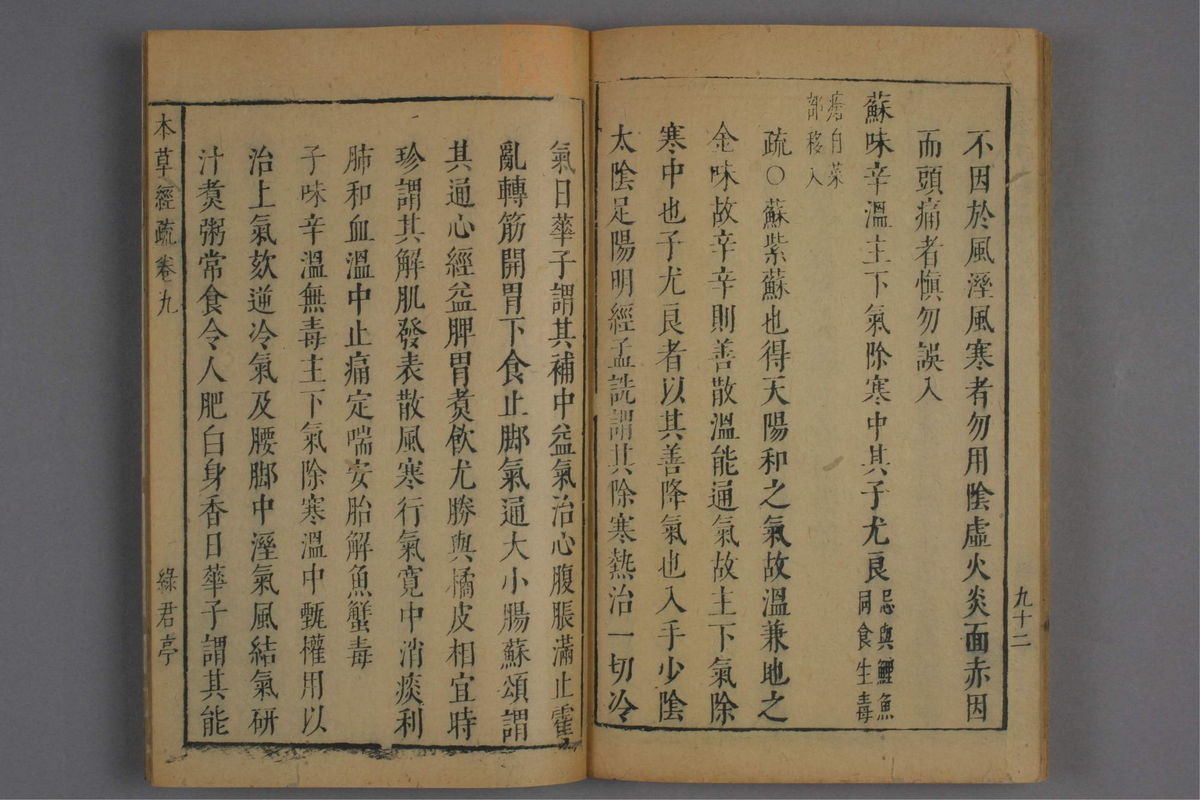 不因於風溼風寒者勿用陰虛火炎面赤因
而頭痛者慎勿誤入
蘇味辛溫主下氣除寒中其子尤良忌與鯉魚
同食生毒
瘡自菜
部移入
疏○蘇紫蘇也得天陽和之氣故溫兼地之
金味故辛辛則善散溫能通氣故主下氣除
寒中也子尤良者以其善降氣也入手少陰
太陰足陽明經孟詵謂其除寒熱治一切冷
九十二
氣日華子謂其補中益氣治心腹脹滿止霍
亂轉筋開胃下食止脚氣通大小腸蘇頌謂
其通心經益脾胃煑飲尤勝與橘皮相宜時
珍謂其解肌發表散風寒行氣寬中消痰利
肺和血溫中止痛定喘安胎解魚蟹毒
子味辛溫無毒主下氣除寒溫中甄權用以
治上氣欬逆冷氣及腰脚中溼氣風結氣研
汁煑粥常食令人肥白身香日華子謂其能
本草經疏 卷九
綠君亭